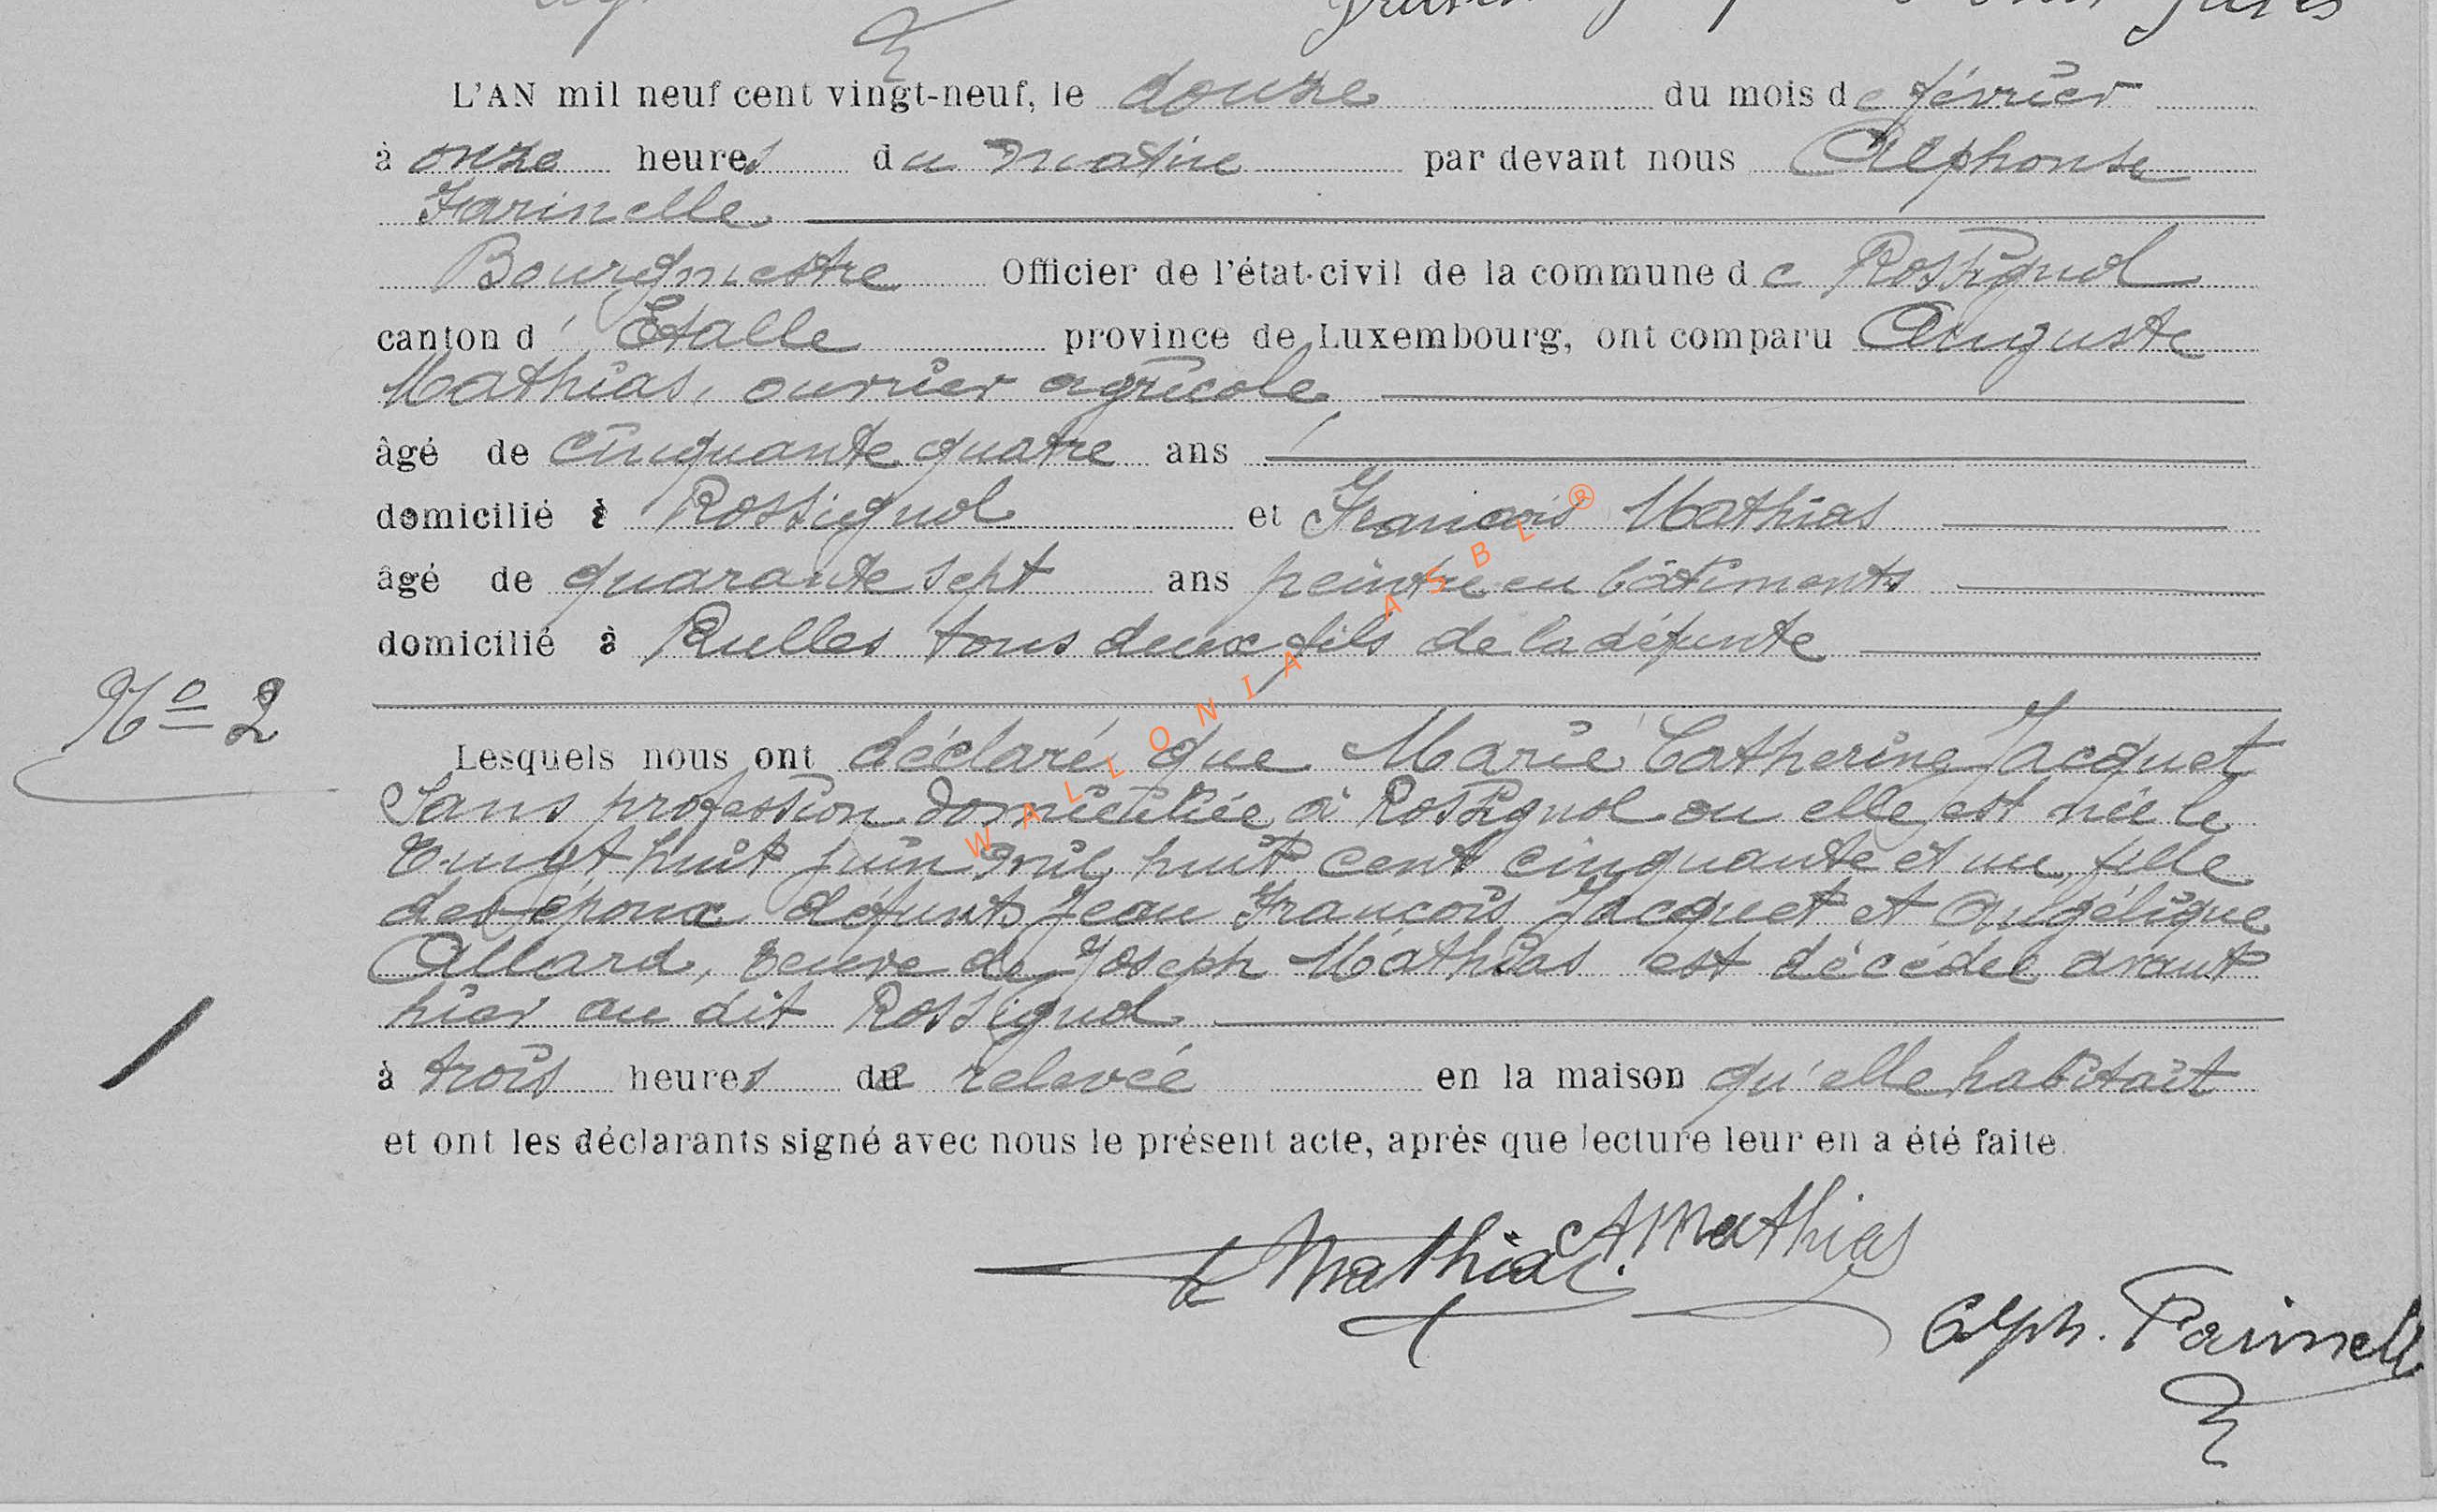 L'AN mil neuf cent vingt-neuf, le douze du mois de février
à onze heures du matin par devant nous Alphonse
Farinelle
Bourgmestre Officier de l'état-civil de la commune de Rossignol
canton d' Etalle province de Luxembourg, ont comparu Auguste
Mathias, ouvrier agricole,
âgé de cinquante quatre ans
domicilié à Rossignol et François Mathias
âgé de quarante sept ans peintre en bâtiments
domicilié à Rulles tous deux fils de la défunte
No 2
Lesquels nous ont déclaré que Marie Catherine Jacquet
Sans profession domiciliée à Rossignol ou elle est née le
vingt huit juin mil huit cent cinquante et un, fille
des époux défunts Jean François Jacquet et Angélique
Allard, veuve de Joseph Mathias est décédée avant
hier au dit Rossignol
à trois heures de relevée en la maison qu'elle habitait
et ont les déclarants signé avec nous le présent acte, après que lecture leur en a été faite.
Mathias A Mathias
Alph. Farinelle
WALLONIA ASBL ®